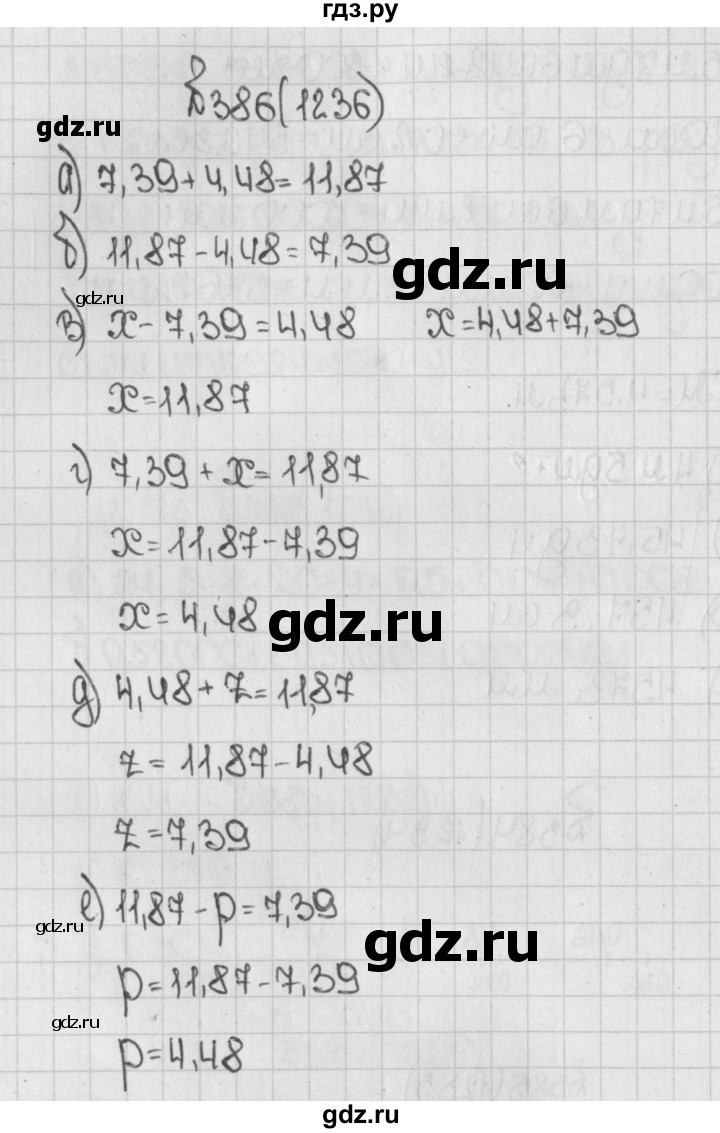 гдз.ру
№386(1236)
gdz.ru
а) 7,39+4,48=11,87
б) 11,87-4,48=7,39
gdz.ru
gdz.ru
в) x-7,39=4,48 x=4,48+7,39
x=11,87
г) 7,39+x=11,87
x=11,87-7,39
x=4,48
gdz.ru
д) 4,48+z=11,87
z=11,87-4,48
z=7,39
е) 11,87-p=7,39
gdz.ru
gdz.ru
p=11,87-7,39
gdz.ru
p=4,48
gdz.ru